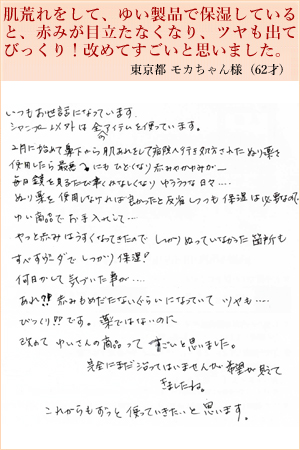 肌荒れをして、ゆい製品で保湿している
と、赤みが目立たなくなり、ツヤも出て
びっくり！改めてすごいと思いました。
東京都 モカちゃん様（62才）
いつもお世話になっています。
シャンプー以外は全アイテムを使っています。
2月に始めて薬下から肌あれをして病院へ行き処方されたぬり薬を
使用したら最悪
にもひどくなり赤みやかゆみが
毎日鏡を見るたび悲くなり ゆううつな日々‥‥
ぬり薬を使用しなければ良かったと反省しつつも保湿は必要なので
ゆい商品でお手入れして‥‥
やっと赤みはうすくなってきたので しっかりぬっていなかった箇所も
すべすべ でしっかり保湿？
何日かして気づいた事が‥‥
あれ？！赤みもめだたないぐらいになっていて ツヤも‥‥
びっくり！！です。薬ではないのに
改めて ゆいさんの商品って すごいと思いました。
完全にまだ治ってはいませんが希望が見えて
きましたね。
これからもずっと使っていきたいと思います。